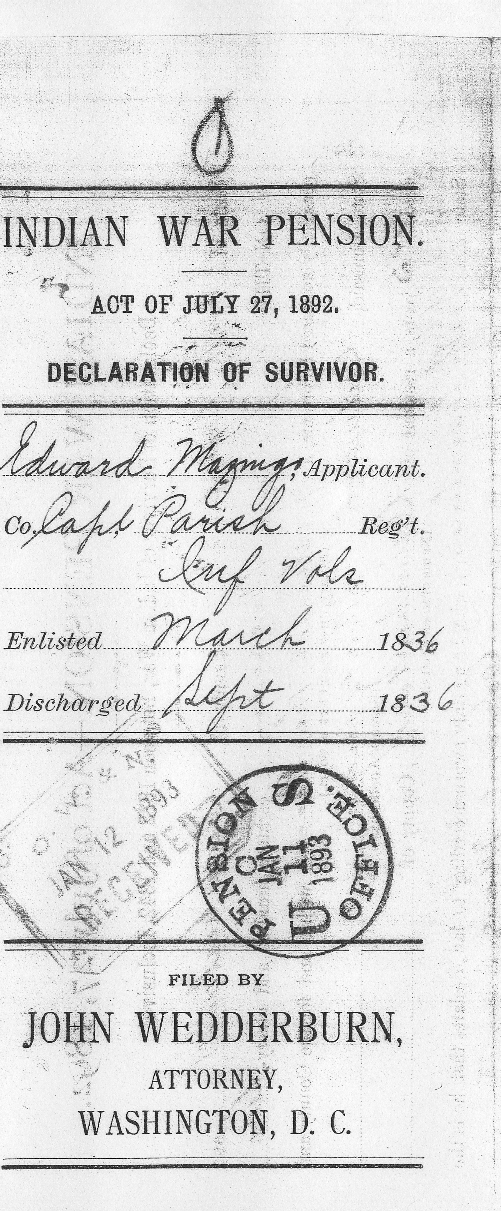 INDIAN WAR PENSION.
ACT OF JULY 27, 1892.
DECLARATION OF SURVIVOR.
Edward Applicant.
Co. Capt Parish Reg't.
Inf Vols
Enlisted March 1836
Discharged Sept 1836
JAN 12 1893
RECEIVED
U S PENSION OFFICE.
JAN
11
1893
FILED BY
JOHN WEDDERBURN,
ATTORNEY,
WASHINGTON, D. C.